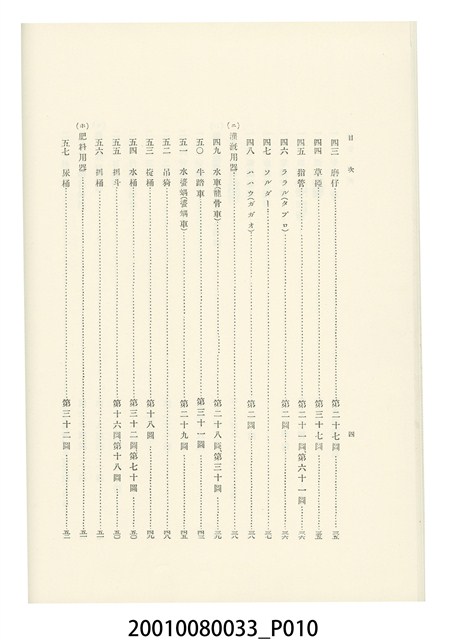 目次
四
四三 磨仔 第二十七圖 三五
四四 草陸 第三十七圖 三五
四五 指管 第二十一圖第六十一圖 三六
四六 ララル(タブロ) 第二圖 三六
四七 ソルダー 三七
四八 ハハウ(ガガオ) 第二圖 三八
(ニ) 灌漑用器 三八
四九 水車(龍骨車) 第二十八圖第三十圖 三九
五〇 牛踏車 第三十一圖 四三
五一 水車 第二十九圖 四五
五二 吊 四八
五三 桶 第十八圖 四九
五四 水桶 第三十二圖第七十圖 五〇
五五 斗 第十六圖第十八圖 五〇
五六 桶 五一
(ホ) 肥料用器 五一
五七 尿桶 第三十二圖 五一
20010080033_P010